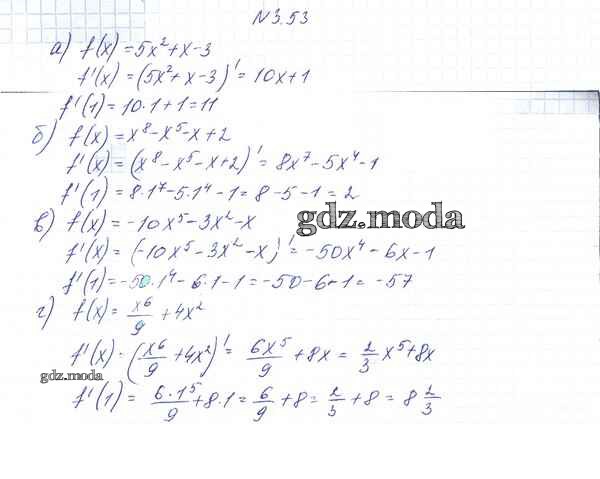 №3.53
а) f(x) = 5x²+x-3
f'(x) = (5x²+x-3)' = 10x+1
f'(1) = 10·1+1 = 11
б) f(x) = x⁸-x⁵-x+2
f'(x) = (x⁸-x⁵-x+2)' = 8x⁷-5x⁴-1
f'(1) = 8·1⁷-5·1⁴-1 = 8-5-1 = 2
в) f(x) = -10x⁵-3x²-x
gdz.moda
f'(x) = (-10x⁵-3x²-x)' = -50x⁴-6x-1
f'(1) = -50·1⁴-6·1-1 = -50-6-1 = -57
г) f(x) = x⁶/9 + 4x²
f'(x) = (x⁶/9 + 4x²)' = 6x⁵/9 + 8x = 2/3 x⁵+8x
gdz.moda
f'(1) = 6·1⁵/9 + 8·1 = 6/9 + 8 = 2/3 + 8 = 8 2/3